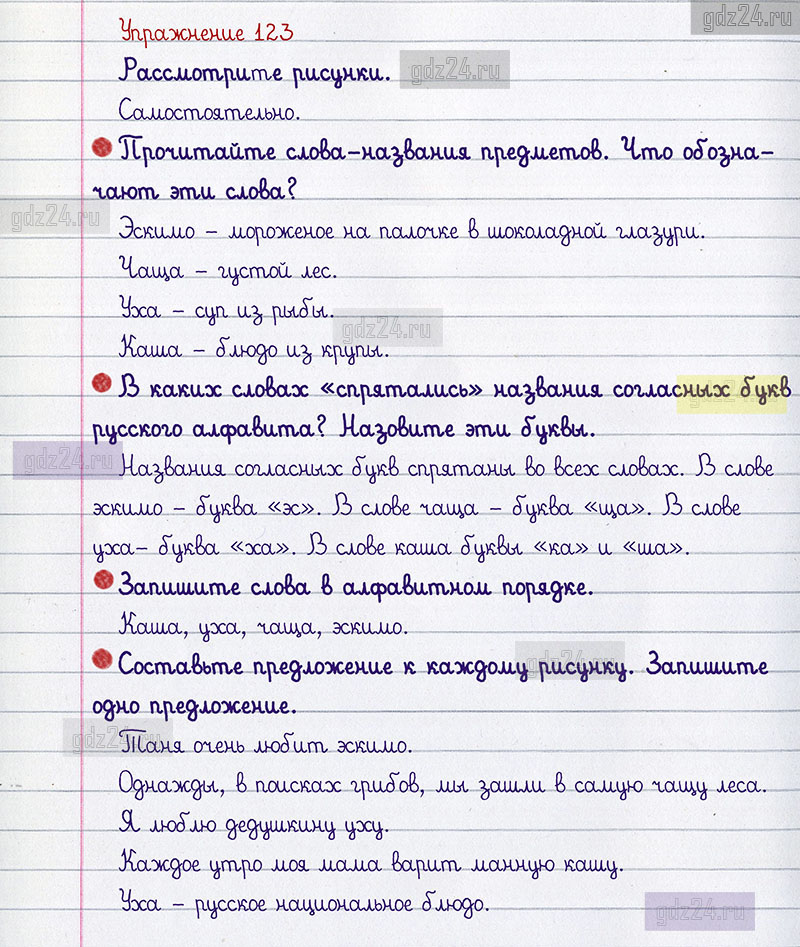 gdz24.ru
Упражнение 123
Рассмотрите рисунки. gdz24.ru
Самостоятельно.
Прочитайте слова-названия предметов. Что обозна-
чают эти слова?
gdz24.ru
Эскимо – мороженое на палочке в шоколадной глазури.
Чаща – густой лес.
Уха – суп из рыбы.
gdz24.ru
Каша – блюдо из крупы.
В каких словах «спрятались» названия согласных букв
русского алфавита? Назовите эти буквы.
gdz24.ru
Названия согласных букв спрятаны во всех словах. В слове
эскимо – буква «эс». В слове чаща – буква «ща». В слове
уха– буква «ха». В слове каша буквы «ка» и «ша».
Запишите слова в алфавитном порядке.
Каша, уха, чаща, эскимо.
gdz24.ru
Составьте предложение к каждому рисунку. Запишите
одно предложение.
gdz24.ru
Таня очень любит эскимо.
Однажды, в поисках грибов, мы зашли в самую чащу леса.
Я люблю дедушкину уху.
Каждое утро моя мама варит манную кашу.
Уха – русское национальное блюдо.
gdz24.ru